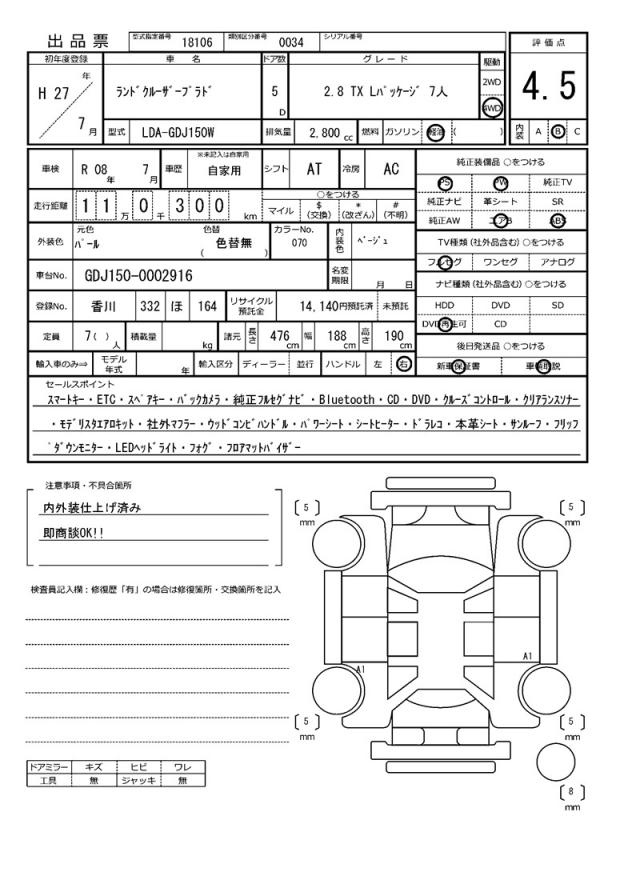 出品票 型式指定番号 18106 類別区分番号 0034 シリアル番号
評価点
4.5
内装 A B C
初年度登録 車名 ドア数 グレード 駆動
H 27年 7月
ランドクルーザープラド 5D 2.8 TX Lパッケージ 7人 2WD 4WD
型式 LDA-GDJ150W 排気量 2,800cc 燃料 ガソリン 軽油 ( )
車検 R 08年 7月 車歴 ※未記入は自家用 自家用 シフト AT 冷房 AC
走行距離 11万0千300km
○をつける
マイル $(交換) *(改ざん) #(不明)
外装色 元色 パール 色替 ( 色替無 ) カラーNo. 070 内装色 ベージュ
車台No. GDJ150-0002916 名変期限 月 日
登録No. 香川 332 ほ 164 リサイクル預託金 14,140円預託済 未預託
定員 7( )人 積載量 kg 諸元 長さ 476cm 幅 188cm 高さ 190cm
輸入車のみ⇒ モデル年式 年 輸入区分 ディーラー 並行 ハンドル 左 右
純正装備品 ○をつける
PS PW 純正TV
純正ナビ 革シート SR
純正AW エアB ABS
TV種類(社外品含む)○をつける
フルセグ ワンセグ アナログ
ナビ種類(社外品含む)○をつける
HDD DVD SD
DVD再生可 CD
後日発送品 ○をつける
新車保証書 車輌取説
セールスポイント
スマートキー・ETC・スペアキー・バックカメラ・純正フルセグナビ・Bluetooth・CD・DVD・クルーズコントロール・クリアランスソナー
・モデリスタエアロキット・社外マフラー・ウッドコンビハンドル・パワーシート・シートヒーター・ドラレコ・本革シート・サンルーフ・フリップ
ダウンモニター・LEDヘッドライト・フォグ・フロアマットバイザー
注意事項・不具合箇所
内外装仕上げ済み
即商談OK!!
検査員記入欄：修復歴「有」の場合は修復箇所・交換箇所を記入
[5] mm
[5] mm
A1
A1
[5] mm
[5] mm
[8] mm
ドアミラー キズ ヒビ ワレ
工具 無 ジャッキ 無